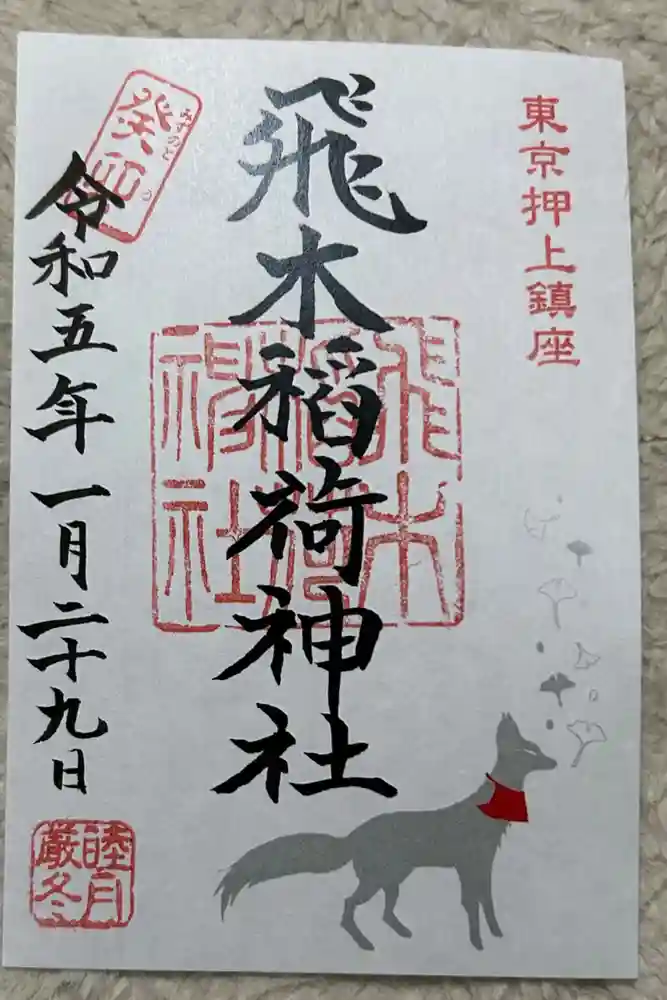 東京押上鎮座
飛木稲荷神社
飛木稲荷神社
癸卯
みずのとう
令和五年一月二十九日
睦月
厳冬